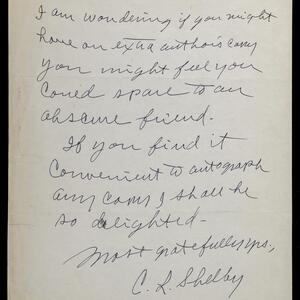 I am wondering if you might
have an extra author's copy
you might feel you
could spare to an
obscure friend.
If you find it
convenient to autograph
any copy I shall be
so delighted.
Most gratefully yrs.,
C. L. Shelby